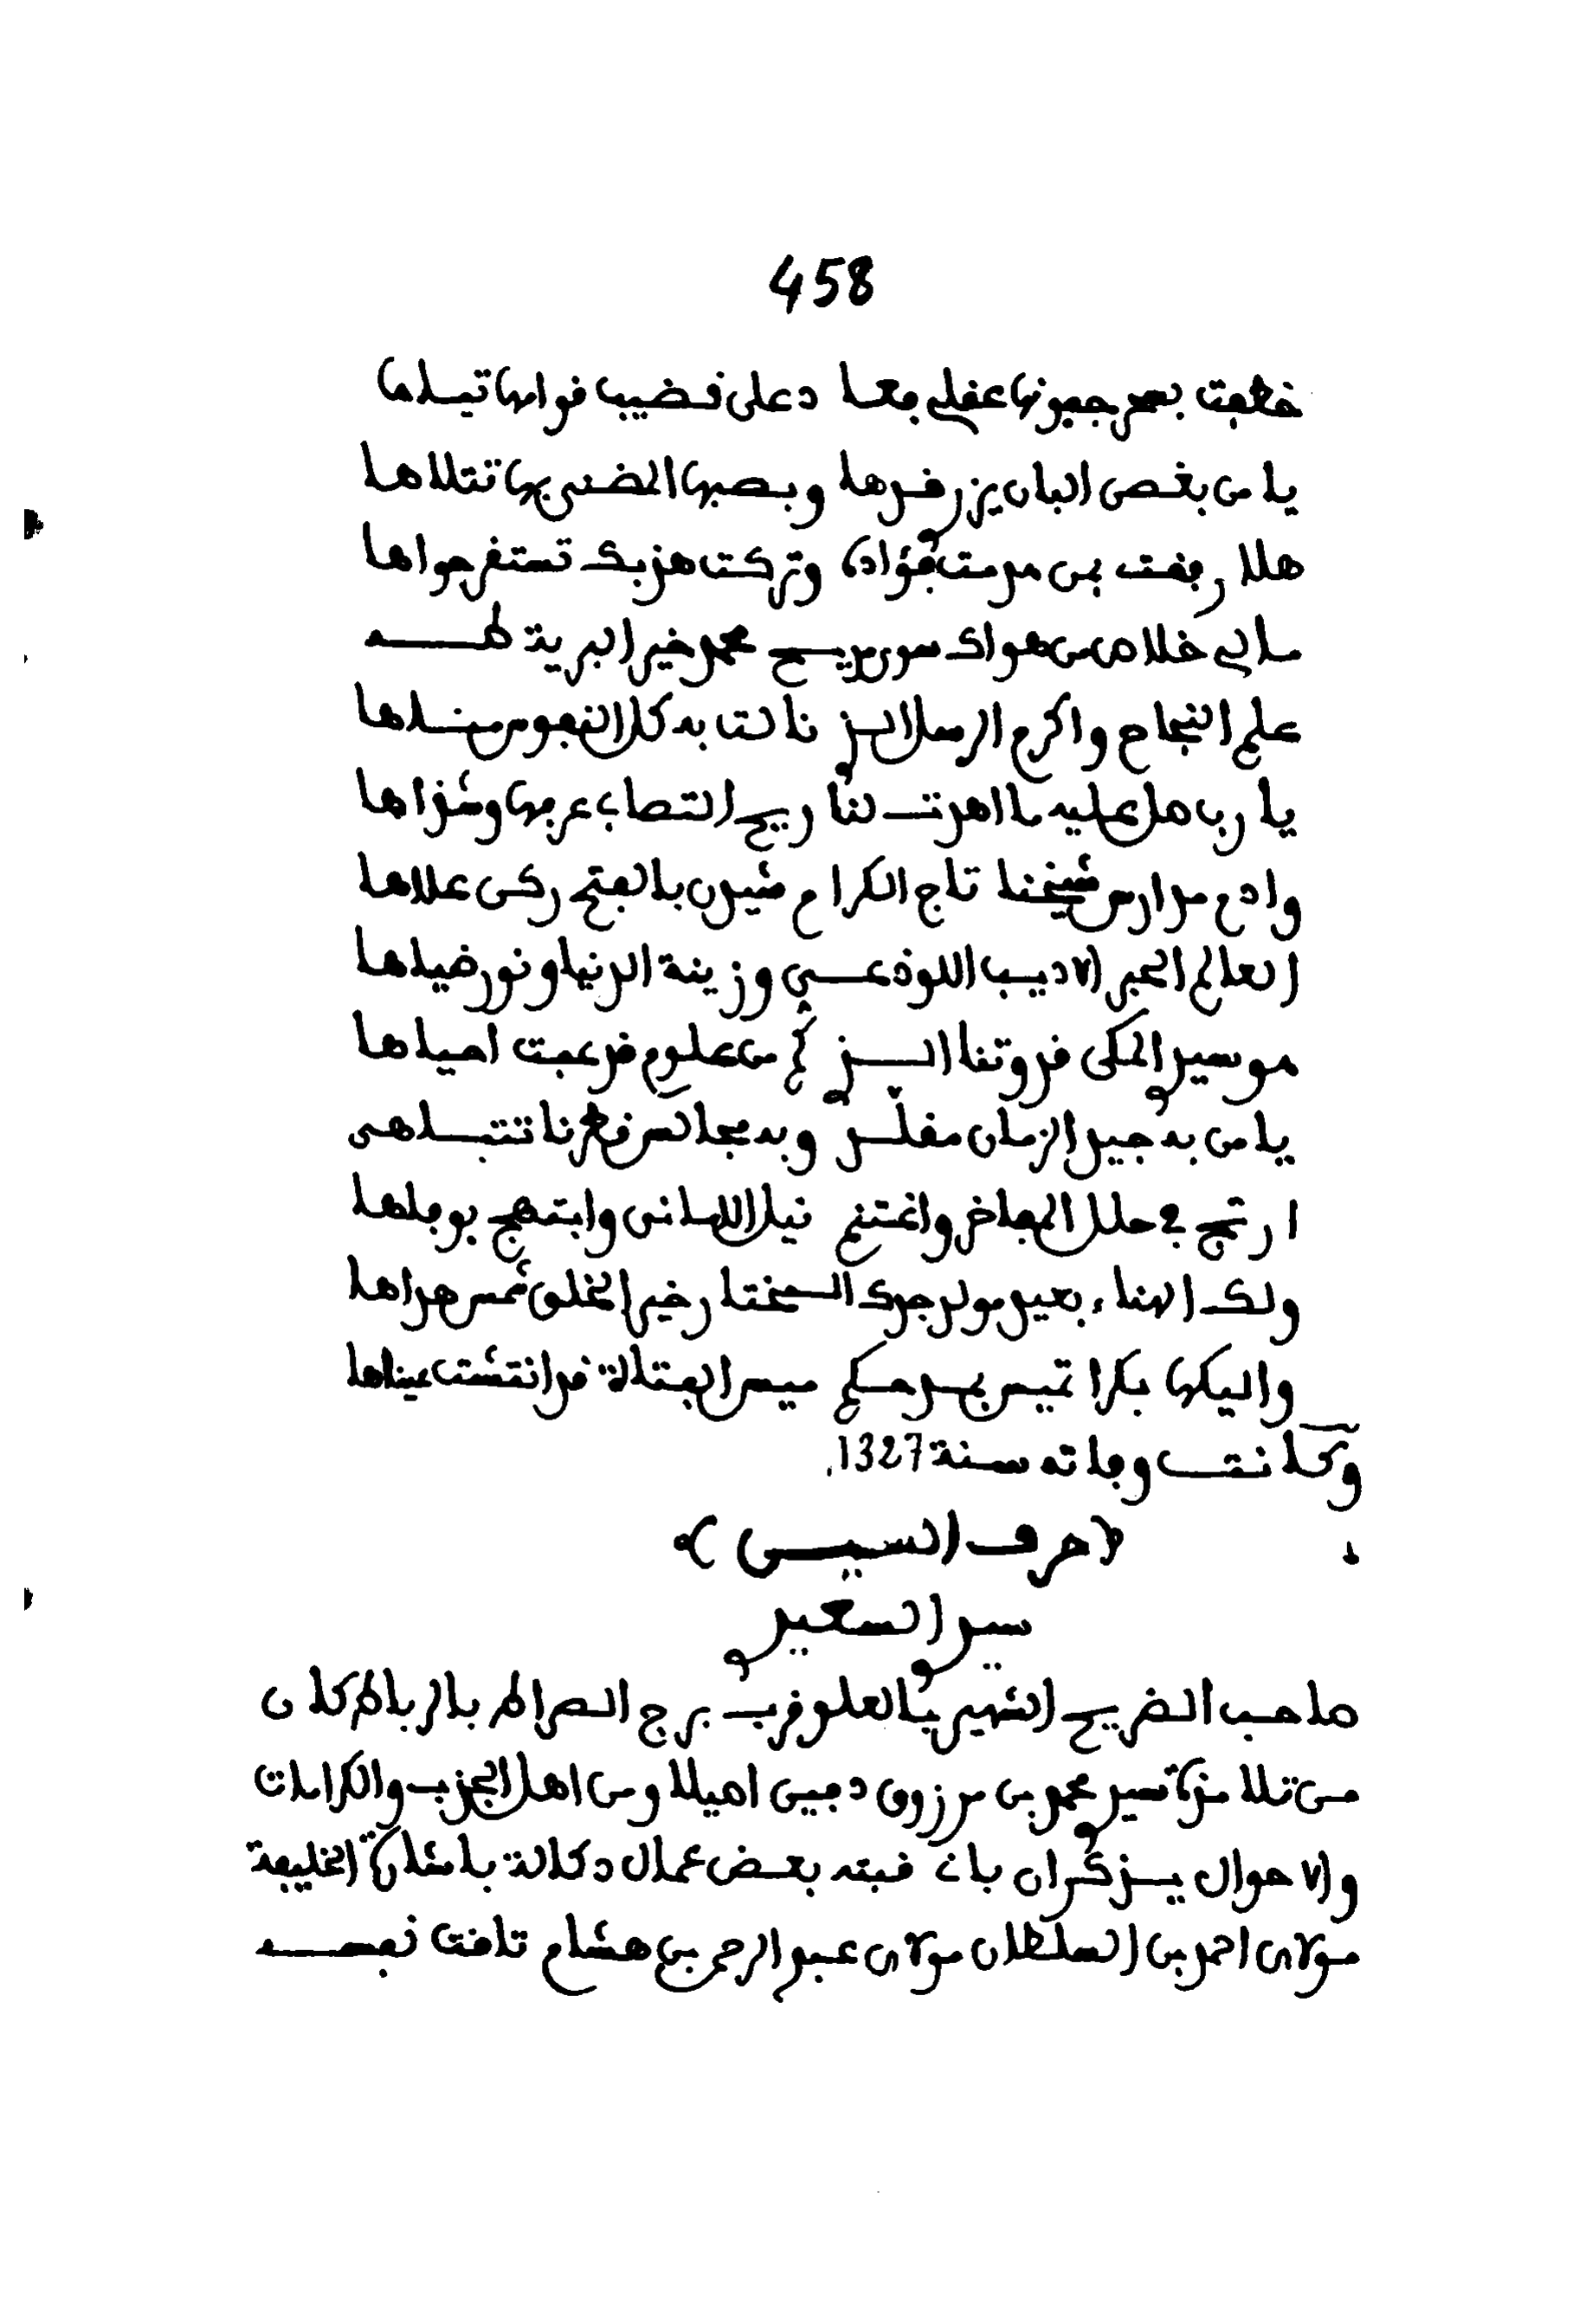 458
خطفت بسحر جفونها عقلي فعا د على قضيب قوامها تيـاها
يا من بغصن البان يزري قدها وبصبها المضنى بها تتلاها
هلا رفقت بمن هويت فؤاده وتركت هزبك تستفز جواها
ما لي خلاص من هواك سوى مديـح محمد خير البرية طـــه
علم النجاح واكرم الرسل الـذي نالت به كل النفوس منـاها
يا رب صل عليه ما اهدت لنا ريح التصابي عرفها وشذاها
وادم مدارس شيخنا تاج الكرام مشيدن بالفتح ركن علاها
العالم الحبر الاديب اللوذعـــي وزينة الدنيا ونور ضياها
هو سيدي المكي قدوتنا الــذي كم من علوم قد عفت احياها
يا من به جيد الزمان مقلــد وبه مجالس قطرنا تتبـاهى
ارتج في حلل المفاخر واغتنم نيل الاماني وابتهج بوفاها
ولك الهناء بعيد مولد جدك الـمختار خير الخلق شمس هداها
واليكها بكرا تميس بمـدحـكم ميس الفتاة قد انتشت عيناها
وكانت وفاته سنة 1327.
(حرف السيـن)
سيدي السعيدي
صاحب الضريح الشهير بالعلو قرب برج الصراط بالرباط كان
من تلامذة سيدي محمد بن مرزوق دفين احيالا ومن اهل الجذب والكرامات
والاحوال يـذكر ان باني قبته بعض عمال دكالة باشارة الخليفة
مولاي احمد بن السلطان مولاي عبد الرحمن بن هشام تاقت نفسـه